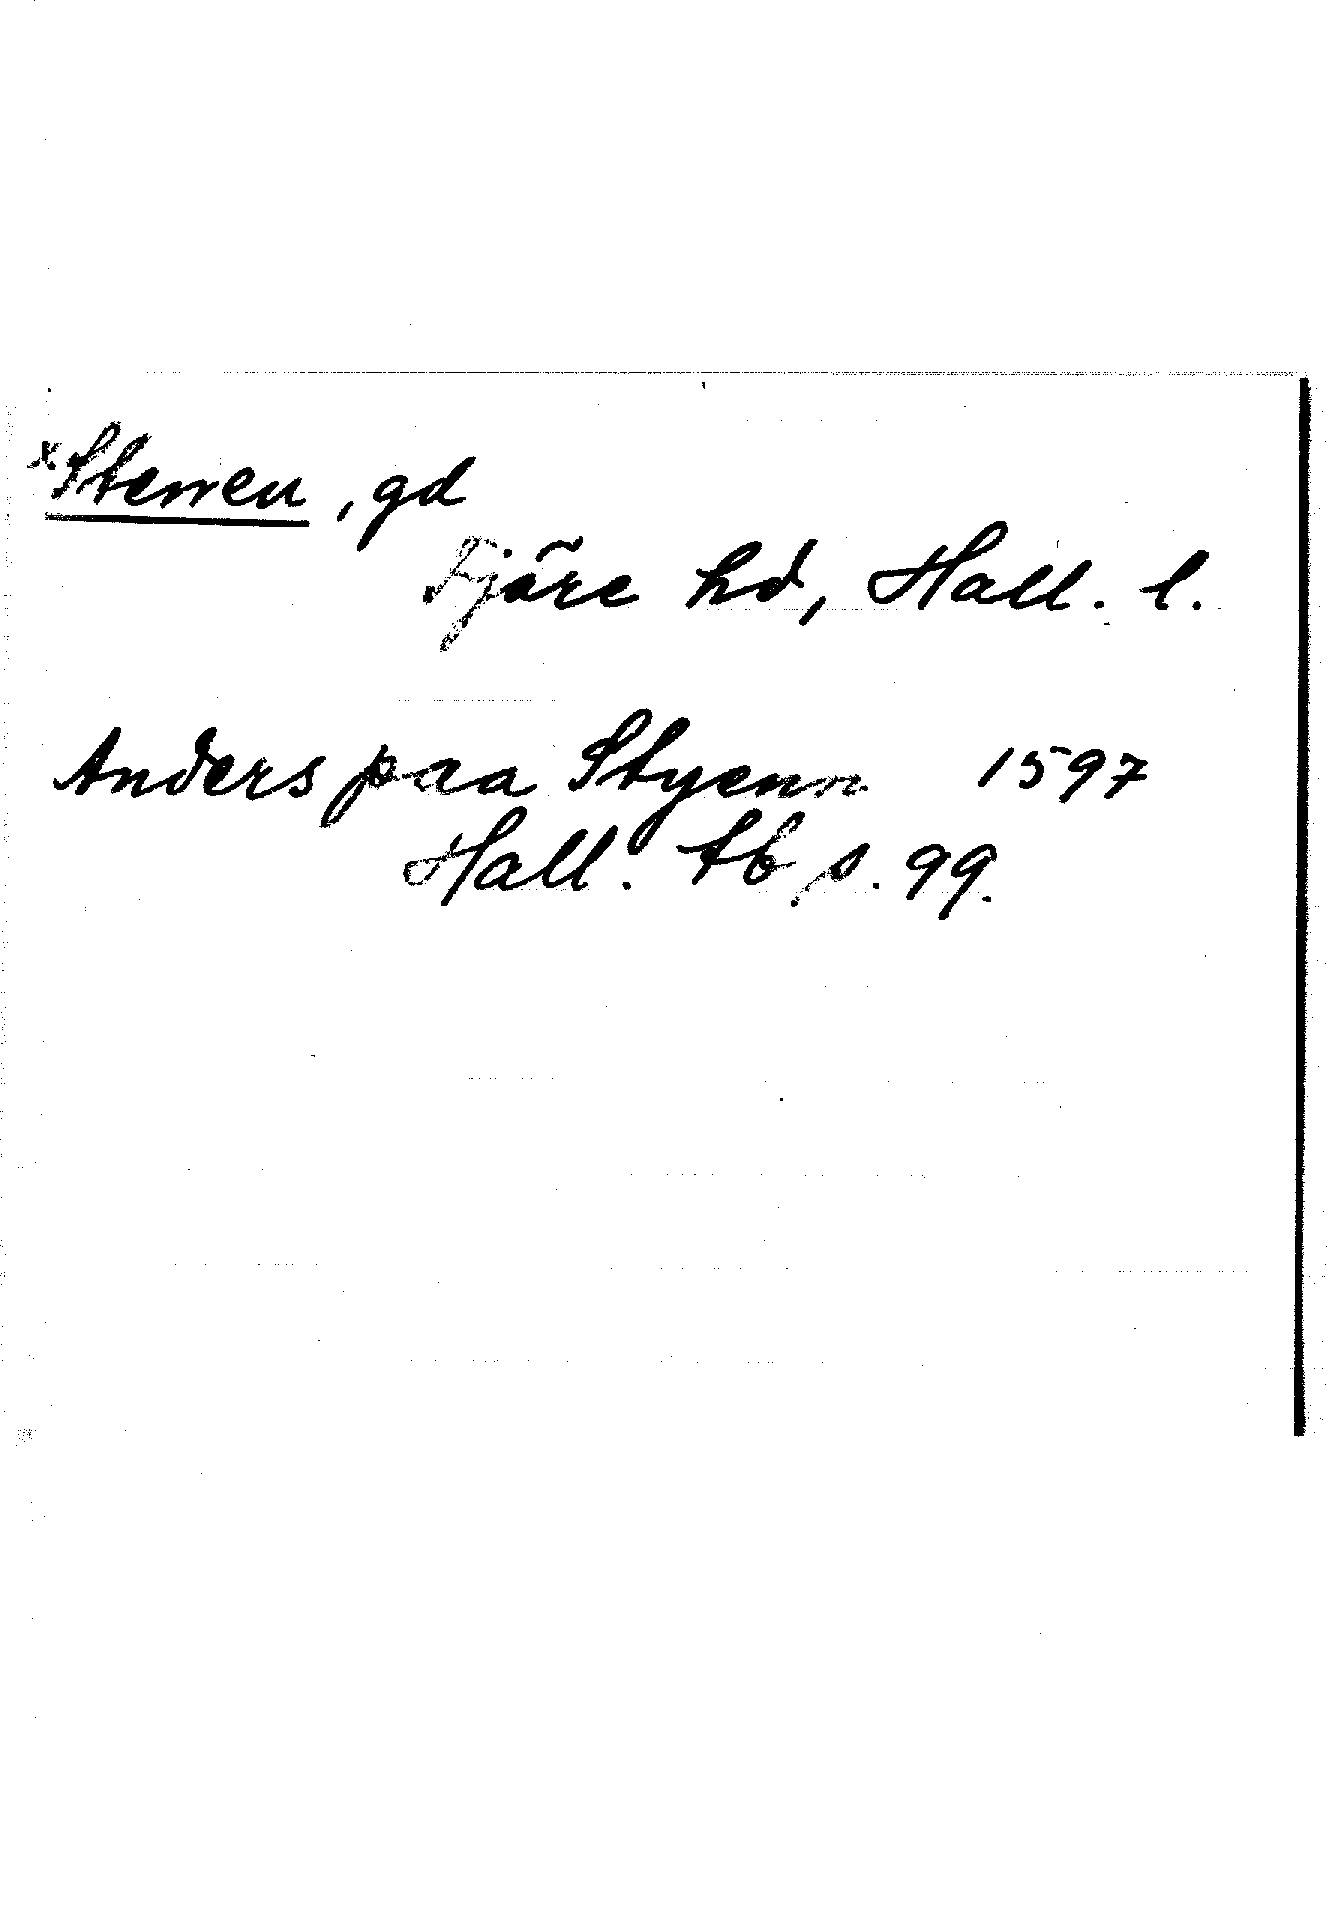 x Stenen, gd
Fjäre hd, Hall. l.
Anders paa Styenn 1597
Hall. tb s. 99.